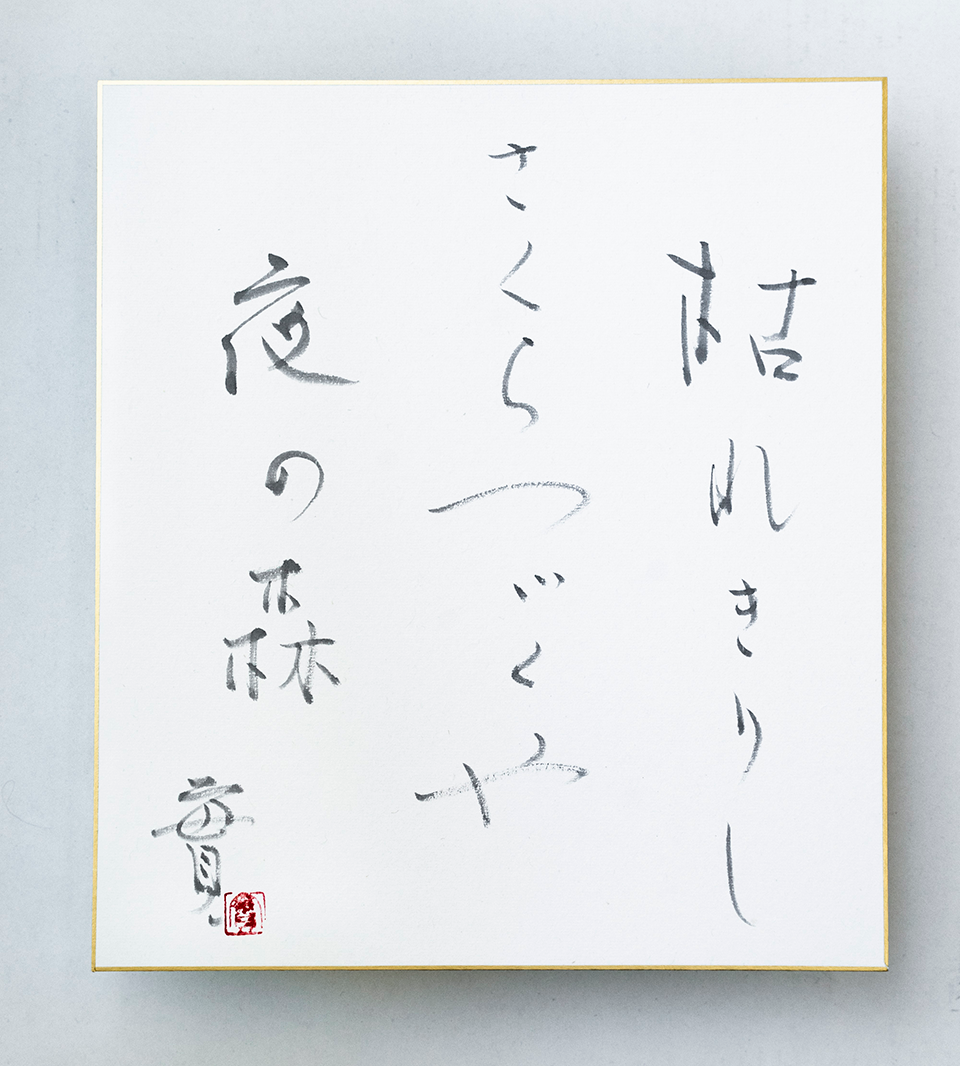 枯れきりし
さくらつづくや
夜の森
實